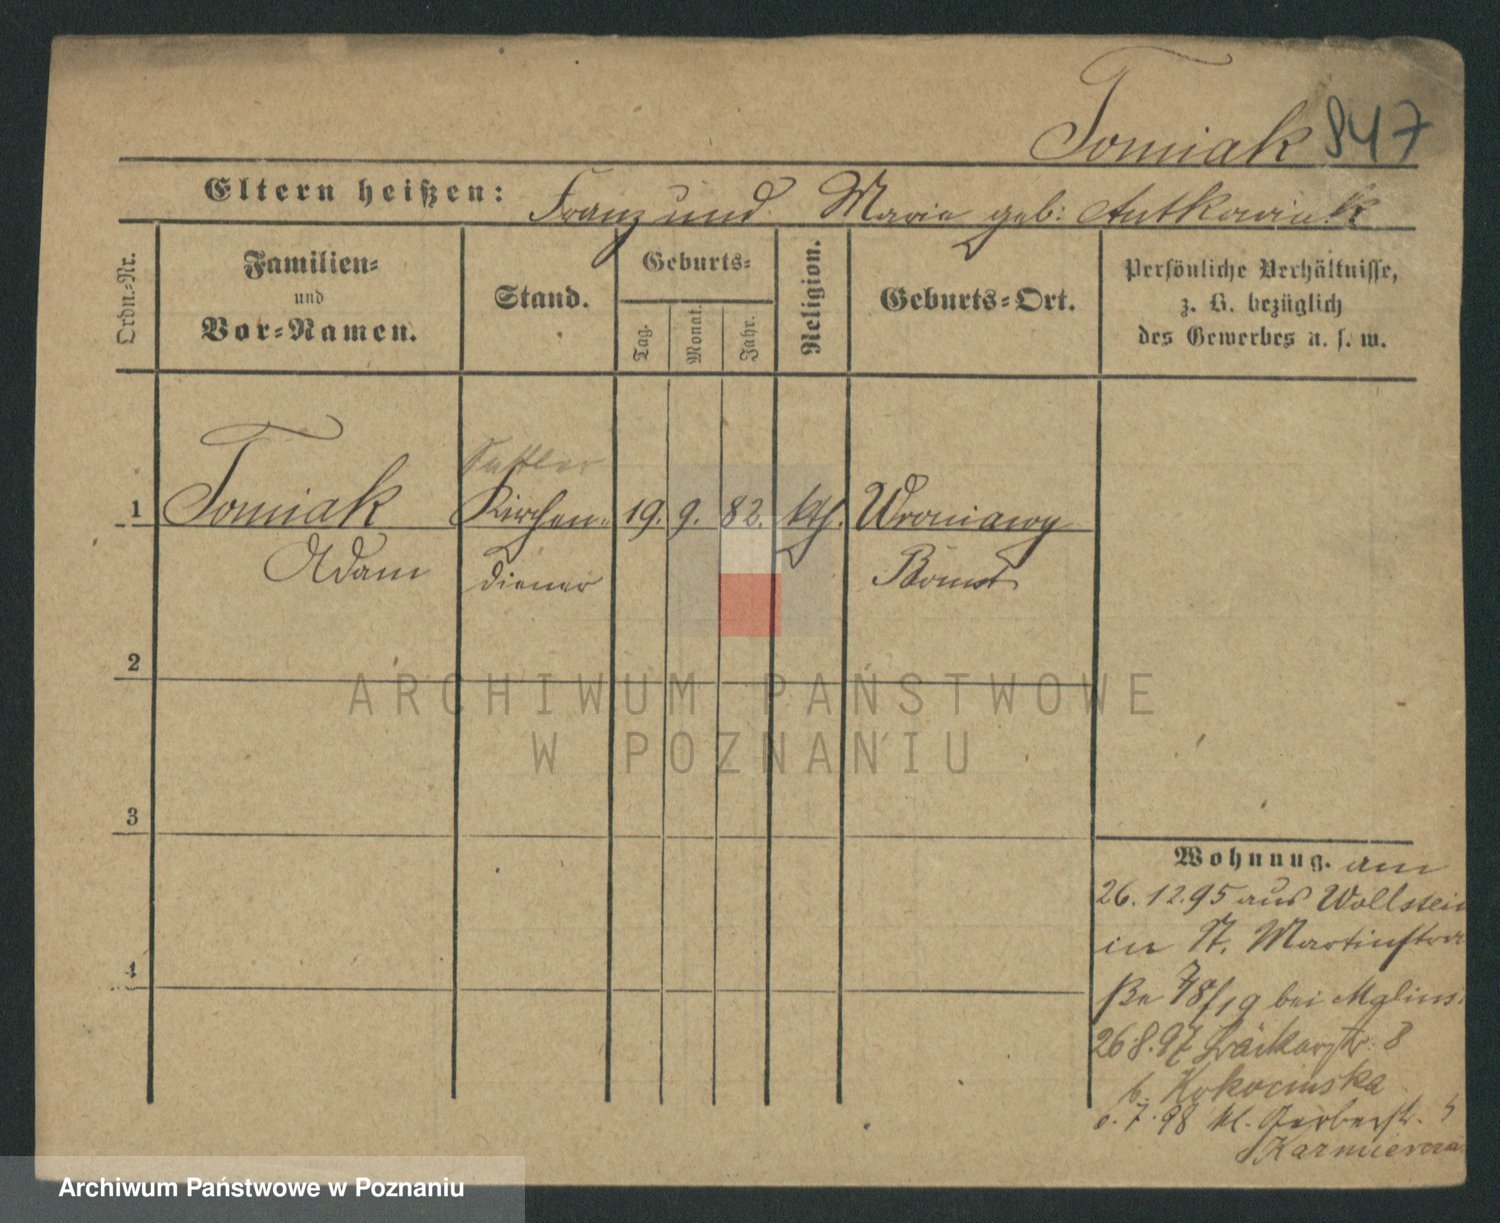 Tomiak 847
Eltern heißen: Franz und Marie geb: Antkowiak
Ordn.-Nr.
Familien-
und
Vor-Namen.
Stand.
Geburts-
Tag.
Monat.
Jahr.
Religion.
Geburts-Ort.
Persönliche Verhältnisse,
z. B. bezüglich
des Gewerbes u. s. w.
Sattler
1 Tomiak Kirchen- 19. 9. 82. kth. Wroniawy
Adam diener Bomst
2
ARCHIWUM PAŃSTWOWE
W POZNANIU
3
4
Wohnung. am
26.12.95 aus Wollstein
in St. Martinstra
ße 78/19 bei Mglins
26.8.97 Bäckerstr. 8
b. Kokocinska
7.98 kl. Gerberstr. 5
Kazmiercza
Archiwum Państwowe w Poznaniu